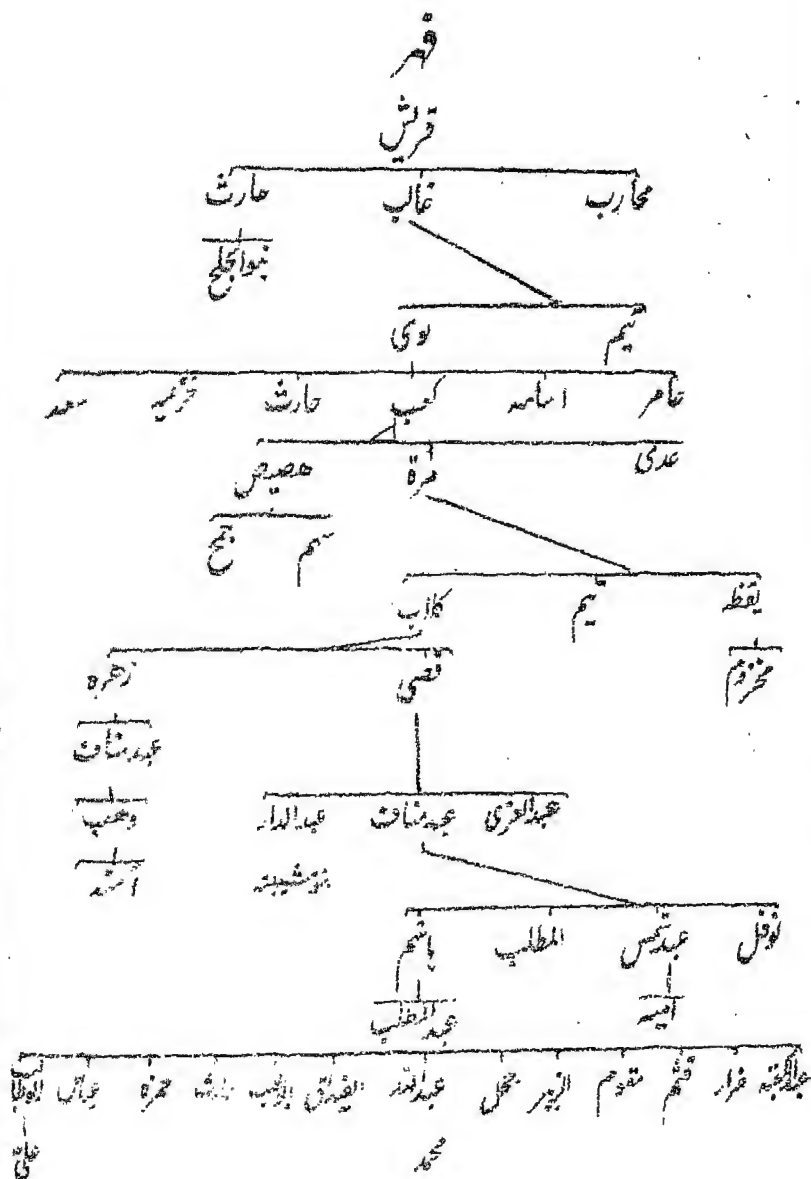 فہر
قریش
محارب غالب حارث
بنوالجلح
تیم لوی
عامر اسامہ کعب حارث خزیمہ سعد
عدی مرۃ ھصیص
سہم جمح
یقظہ تیم کلاب
مخزوم
قصی زھرہ
عبدمناف
عبدالعزی عبدمناف عبدالدار وھب
بنوشیبتہ آمنہ
نوفل عبدشمس المطلب ہاشم
امیہ عبدالمطلب
عبدالکعبہ ضرار قثم مقوم الزبیر حجل عبداللہ الغیداق ابولہب حارث حمزہ عباس ابوطالب
محمد علیؓ